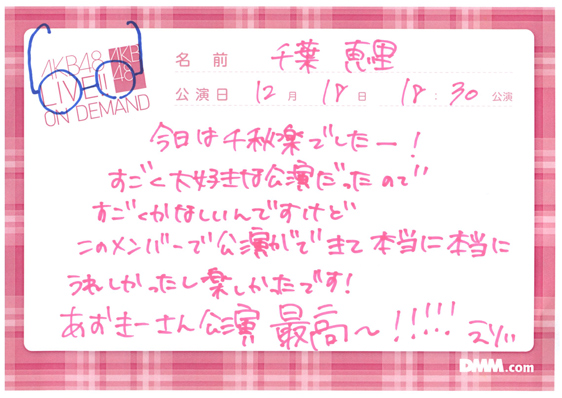 AKB48
LIVE!!
ON DEMAND
AKB
48
名前 千葉 恵里
公演日 12月 18日 18:30 公演
今日は千秋楽でしたー!
すごく大好きな公演だったので
すごくかなしいんですけど
このメンバーで公演ができて本当に本当に
うれしかったし楽しかったです!
あずまーさん公演 最高〜!!!!! えりい
DMM.com